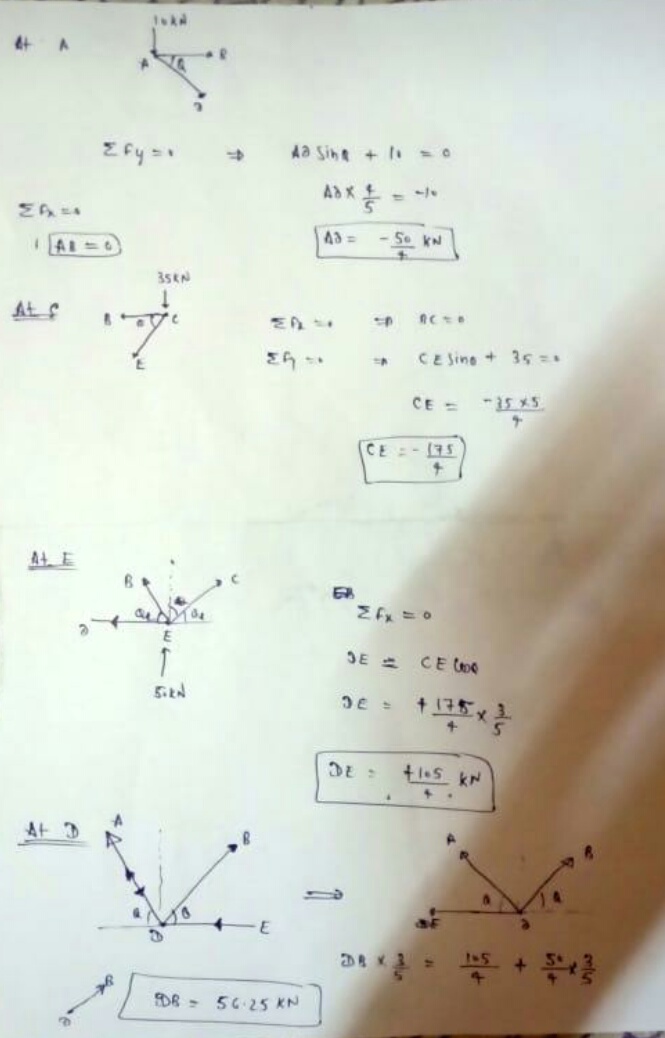 10kN
At A
A
B
Q
D
ΣFy=0 ⇒ AD SinQ + 10 = 0
AD × 4/5 = -10
ΣFx=0
AD = -50/4 kN
AB = 0
35kN
At C
B θ C
E
ΣFx=0 ⇒ BC=0
ΣFy=0 ⇒ CE Sinθ + 35=0
CE = -35×5/4
CE = -175/4
At E
B C
D E
50kN
ΣFx = 0
DE = CE Cosθ
DE = +175/4 × 3/5
DE = +105/4 kN
At D
A B
Q Q
D E
⇒
A B
Q Q
DE D
DB × 3/5 = 105/4 + 50/4 × 3/5
D B
DB = 56.25 KN